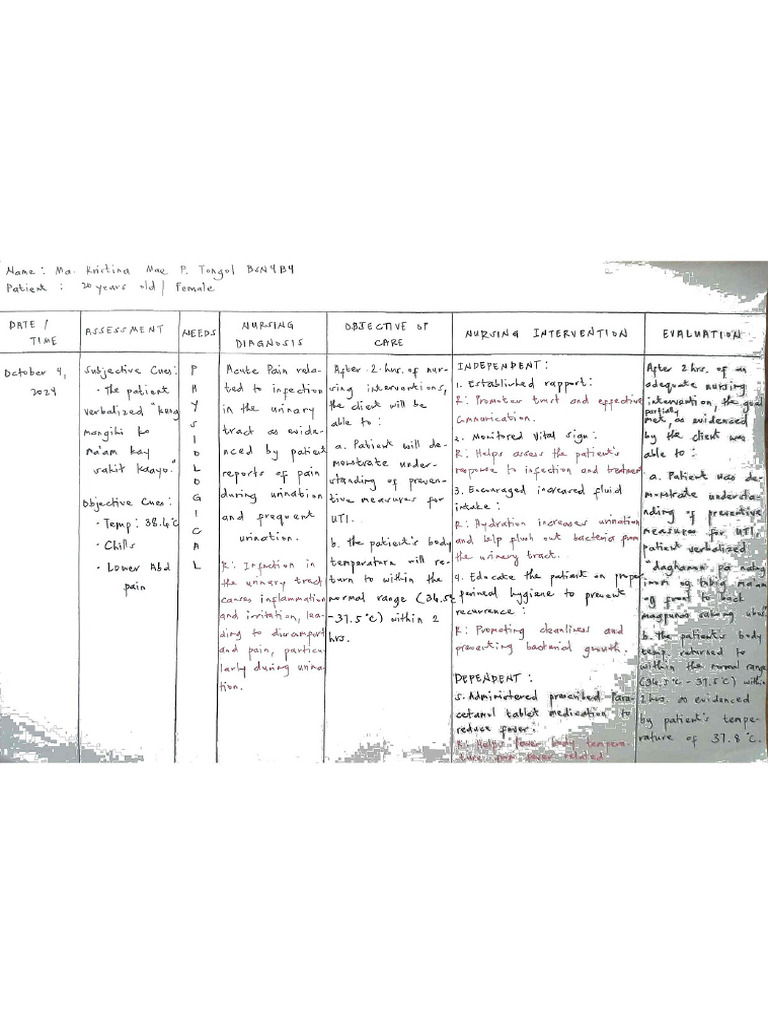 Name: Ma. Kristina Mae P. Tongol BSN4B4
Patient: 20 years old / Female
DATE / TIME
October 4, 2024
ASSESSMENT
Subjective Cues:
• The patient
verbalized "kung
mangihi ko
ma'am kay
sakit kaayo."
Objective Cues:
• Temp: 38.4°C
• Chills
• Lower Abd
pain
NEEDS
PHYSIOLOGICAL
NURSING
DIAGNOSIS
Acute Pain rela-
ted to infection
in the urinary
tract as evide-
nced by patient
reports of pain
during urination
and frequent
urination.
R: Infection in
the urinary tract
causes inflammation
and irritation, lea-
ding to discomfort
and pain, particu-
larly during urina-
tion.
OBJECTIVE OF
CARE
After 2 hrs. of nur-
sing interventions,
the client will be
able to:
a. Patient will de-
monstrate under-
standing of preven-
tive measures for
UTI.
b. the patient's body
temperature will re-
turn to within the
normal range (36.5°C
-37.5°C) within 2
hrs.
NURSING INTERVENTION
INDEPENDENT:
1. Established rapport:
R: Promotes trust and effective
communication.
2. Monitored Vital Sign:
R: Helps assess the patient's
response to infection and treatment.
3. Encouraged increased fluid
intake:
R: Hydration increases urination
and help flush out bacteria from
the urinary tract.
4. Educate the patient on proper
perineal hygiene to prevent
recurrence:
R: Promoting cleanliness and
preventing bacterial growth.
DEPENDENT:
5. Administered prescribed Para-
cetamol tablet medication to
reduce fever:
R: Helps lower body tempera-
ture for fever related
EVALUATION
After 2 hrs. of
adequate nursing
intervention, the goal
partially
met, as evidenced
by the client was
able to:
a. Patient was de-
monstrate understa-
nding of preventive
measures for UTI,
patient verbalized
"daghanon pa nang
imom og tubig ma'am
og front to back
magpunas sakong
b. the patient's body
temp. returned to
within the normal range
(36.5°C - 37.5°C) within
2 hrs. as evidenced
by patient's tempe-
rature of 37.8°C.